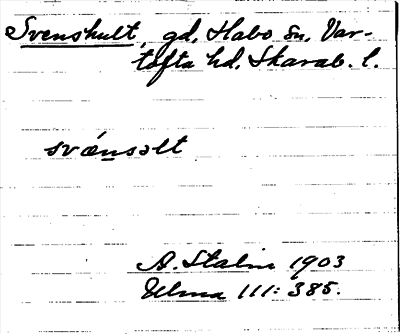 Svenshult, gd, Habo sn, Var-
tofta hd. Skarab. l.
svǽnsəlt
A. Stalin 1903
Ulma 111:385.